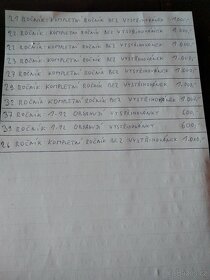 21 ROČNÍK KOMPLETNÍ ROČNÍK BEZ VYSTŘIHOVÁNEK 1000,-
22 ROČNÍK KOMPLETNÍ ROČNÍK BEZ VYSTŘIHOVÁNEK 1.000,-
ROČNÍK KOMPLETNÍ ROČNÍK BEZ VYSTŘIHOVÁNEK 1.000,-
23 ROČNÍK KOMPLETNÍ ROČNÍK BEZ VYSTŘIHOVÁNEK 1.000,-
27 ROČNÍK KOMPLETNÍ ROČNÍK BEZ VYSTŘIHOVÁNEK 1.000,-
29 ROČNÍK KOMPLETNÍ ROČNÍK BEZ VYSTŘIHOVÁNEK 1.000,-
35 ROČNÍK KOMPLETNÍ ROČNÍK BEZ VYSTŘIHOVÁNEK 1.000,-
37 ROČNÍK 1-12 OBSAHUJ VYSTŘIHOVÁNKY 600,-
39 ROČNÍK 1-12 OBSAHUJ VYSTŘIHOVÁNKY 600,-
26 ROČNÍK KOMPLETNÍ ROČNÍK BEZ VYSTŘIHOVÁNEK 1.000,-